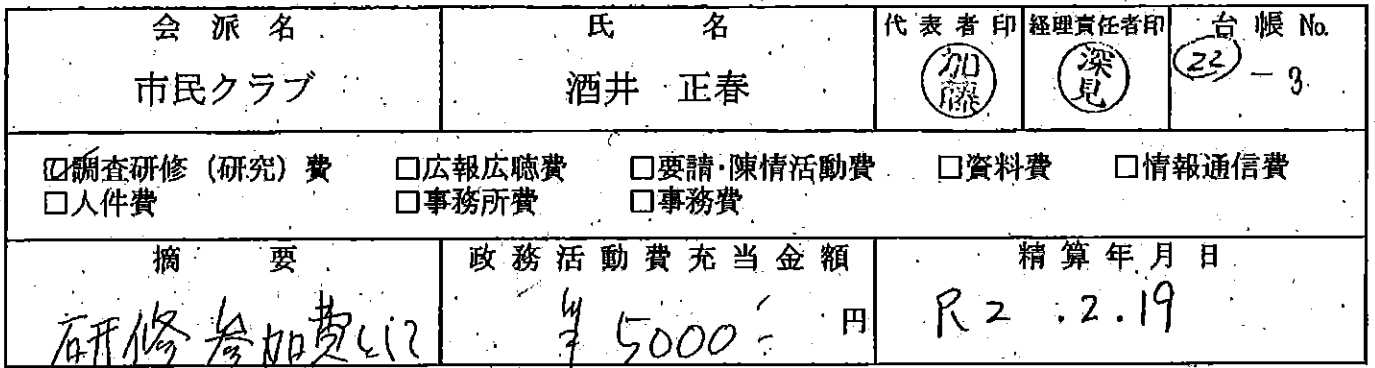 会派名 氏名 代表者印 経理責任者印 台帳 No.
市民クラブ 酒井 正春 加藤 深見 22 - 3
☑調査研修（研究）費 □広報広聴費 □要請・陳情活動費 □資料費 □情報通信費
□人件費 □事務所費 □事務費
摘要 政務活動費充当金額 精算年月日
研修参加費として ¥5000- 円 R2.2.19